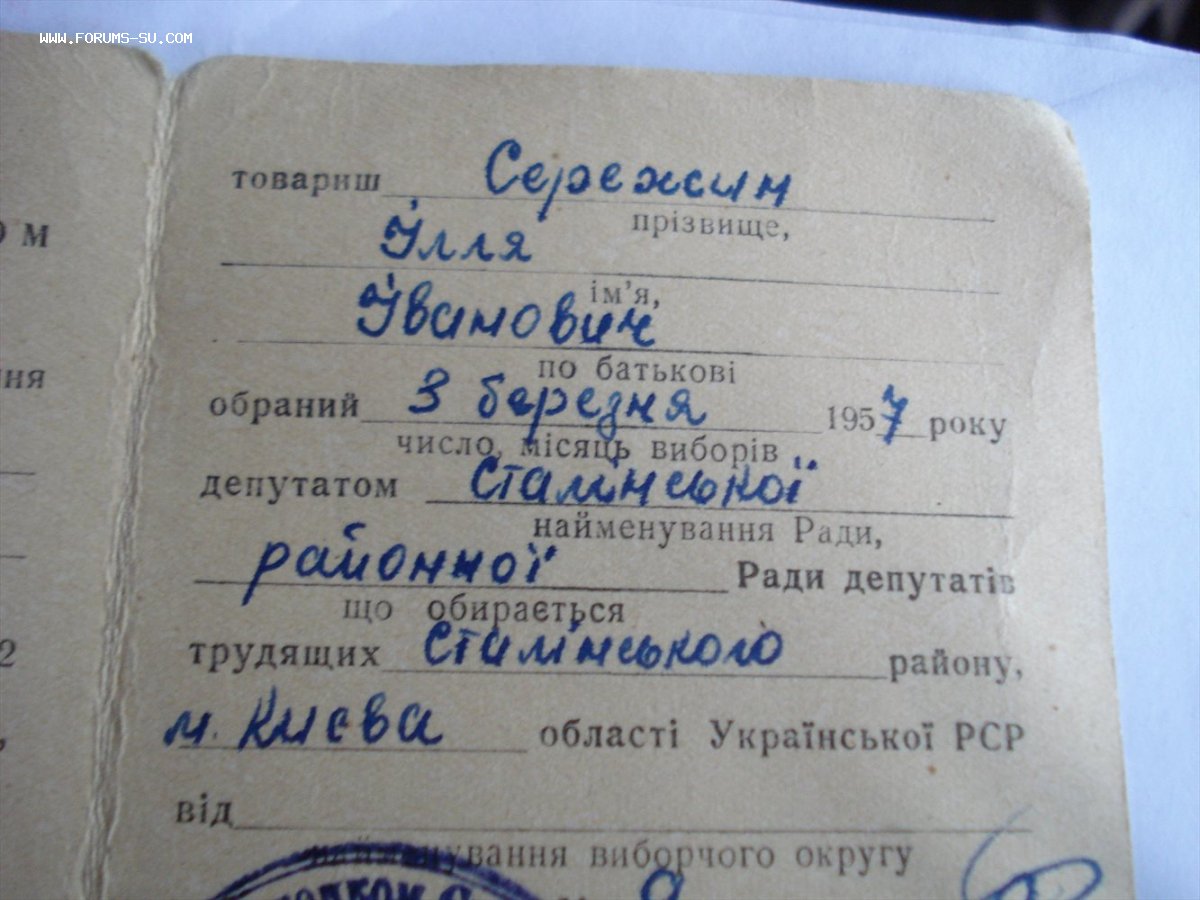 WWW.FORUMS-SU.COM
товариш Сережин
прізвище,
Ілля
ім’я,
Іванович
по батькові
обраний 3 березня 1957 року
число, місяць виборів
депутатом Сталінської
найменування Ради,
районної Ради депутатів
що обирається
трудящих Сталінського району,
м. Києва області Української РСР
від
найменування виборчого округу